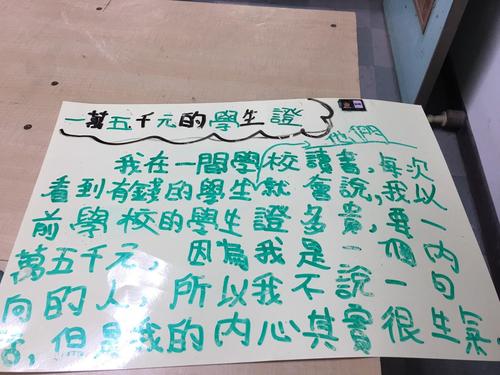 一萬五千元的學生證
他們
我在一間學校讀書,每次
看到有錢的學生就會說,我以
前學校的學生證多貴,要一
萬五千元,因為我是一個內
向的人,所以我不說一句
話,但是我的內心其實很生氣。